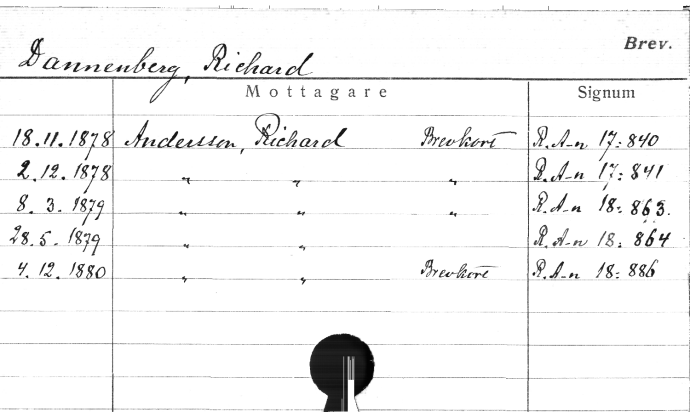 Brev.
Dannenberg, Richard
Mottagare Signum
18.11.1878 Andersson, Richard Brevkort R.A-n 17:840
2.12.1878 " " " R.A-n 17:841
8.3.1879 " " " R.A-n 18:863.
28.5.1879 " " R.A-n 18:864
4.12.1880 " " Brevkort R.A-n 18:886